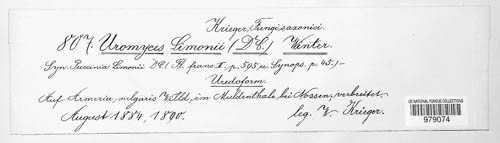 Krieger, Fungi saxonici.
807. Uromyces Limonii (DC.) Winter.
Syn. Puccinia Limonii DC. (Fl. franc. II, p. 595, u. Synops. p. 45.) –
Uredoform.
Auf Armeria vulgaris Willd., im Muldenthale bei Nossen, verbreitet.
August 1884, 1890. leg. W. Krieger.
US NATIONAL FUNGUS COLLECTIONS
979074